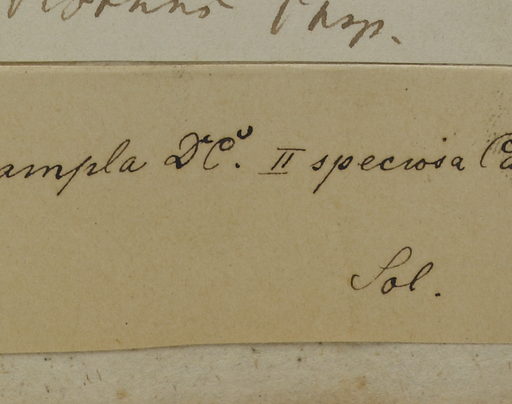 Thsp.
ampla DC. II speciosa Ca
Sol.